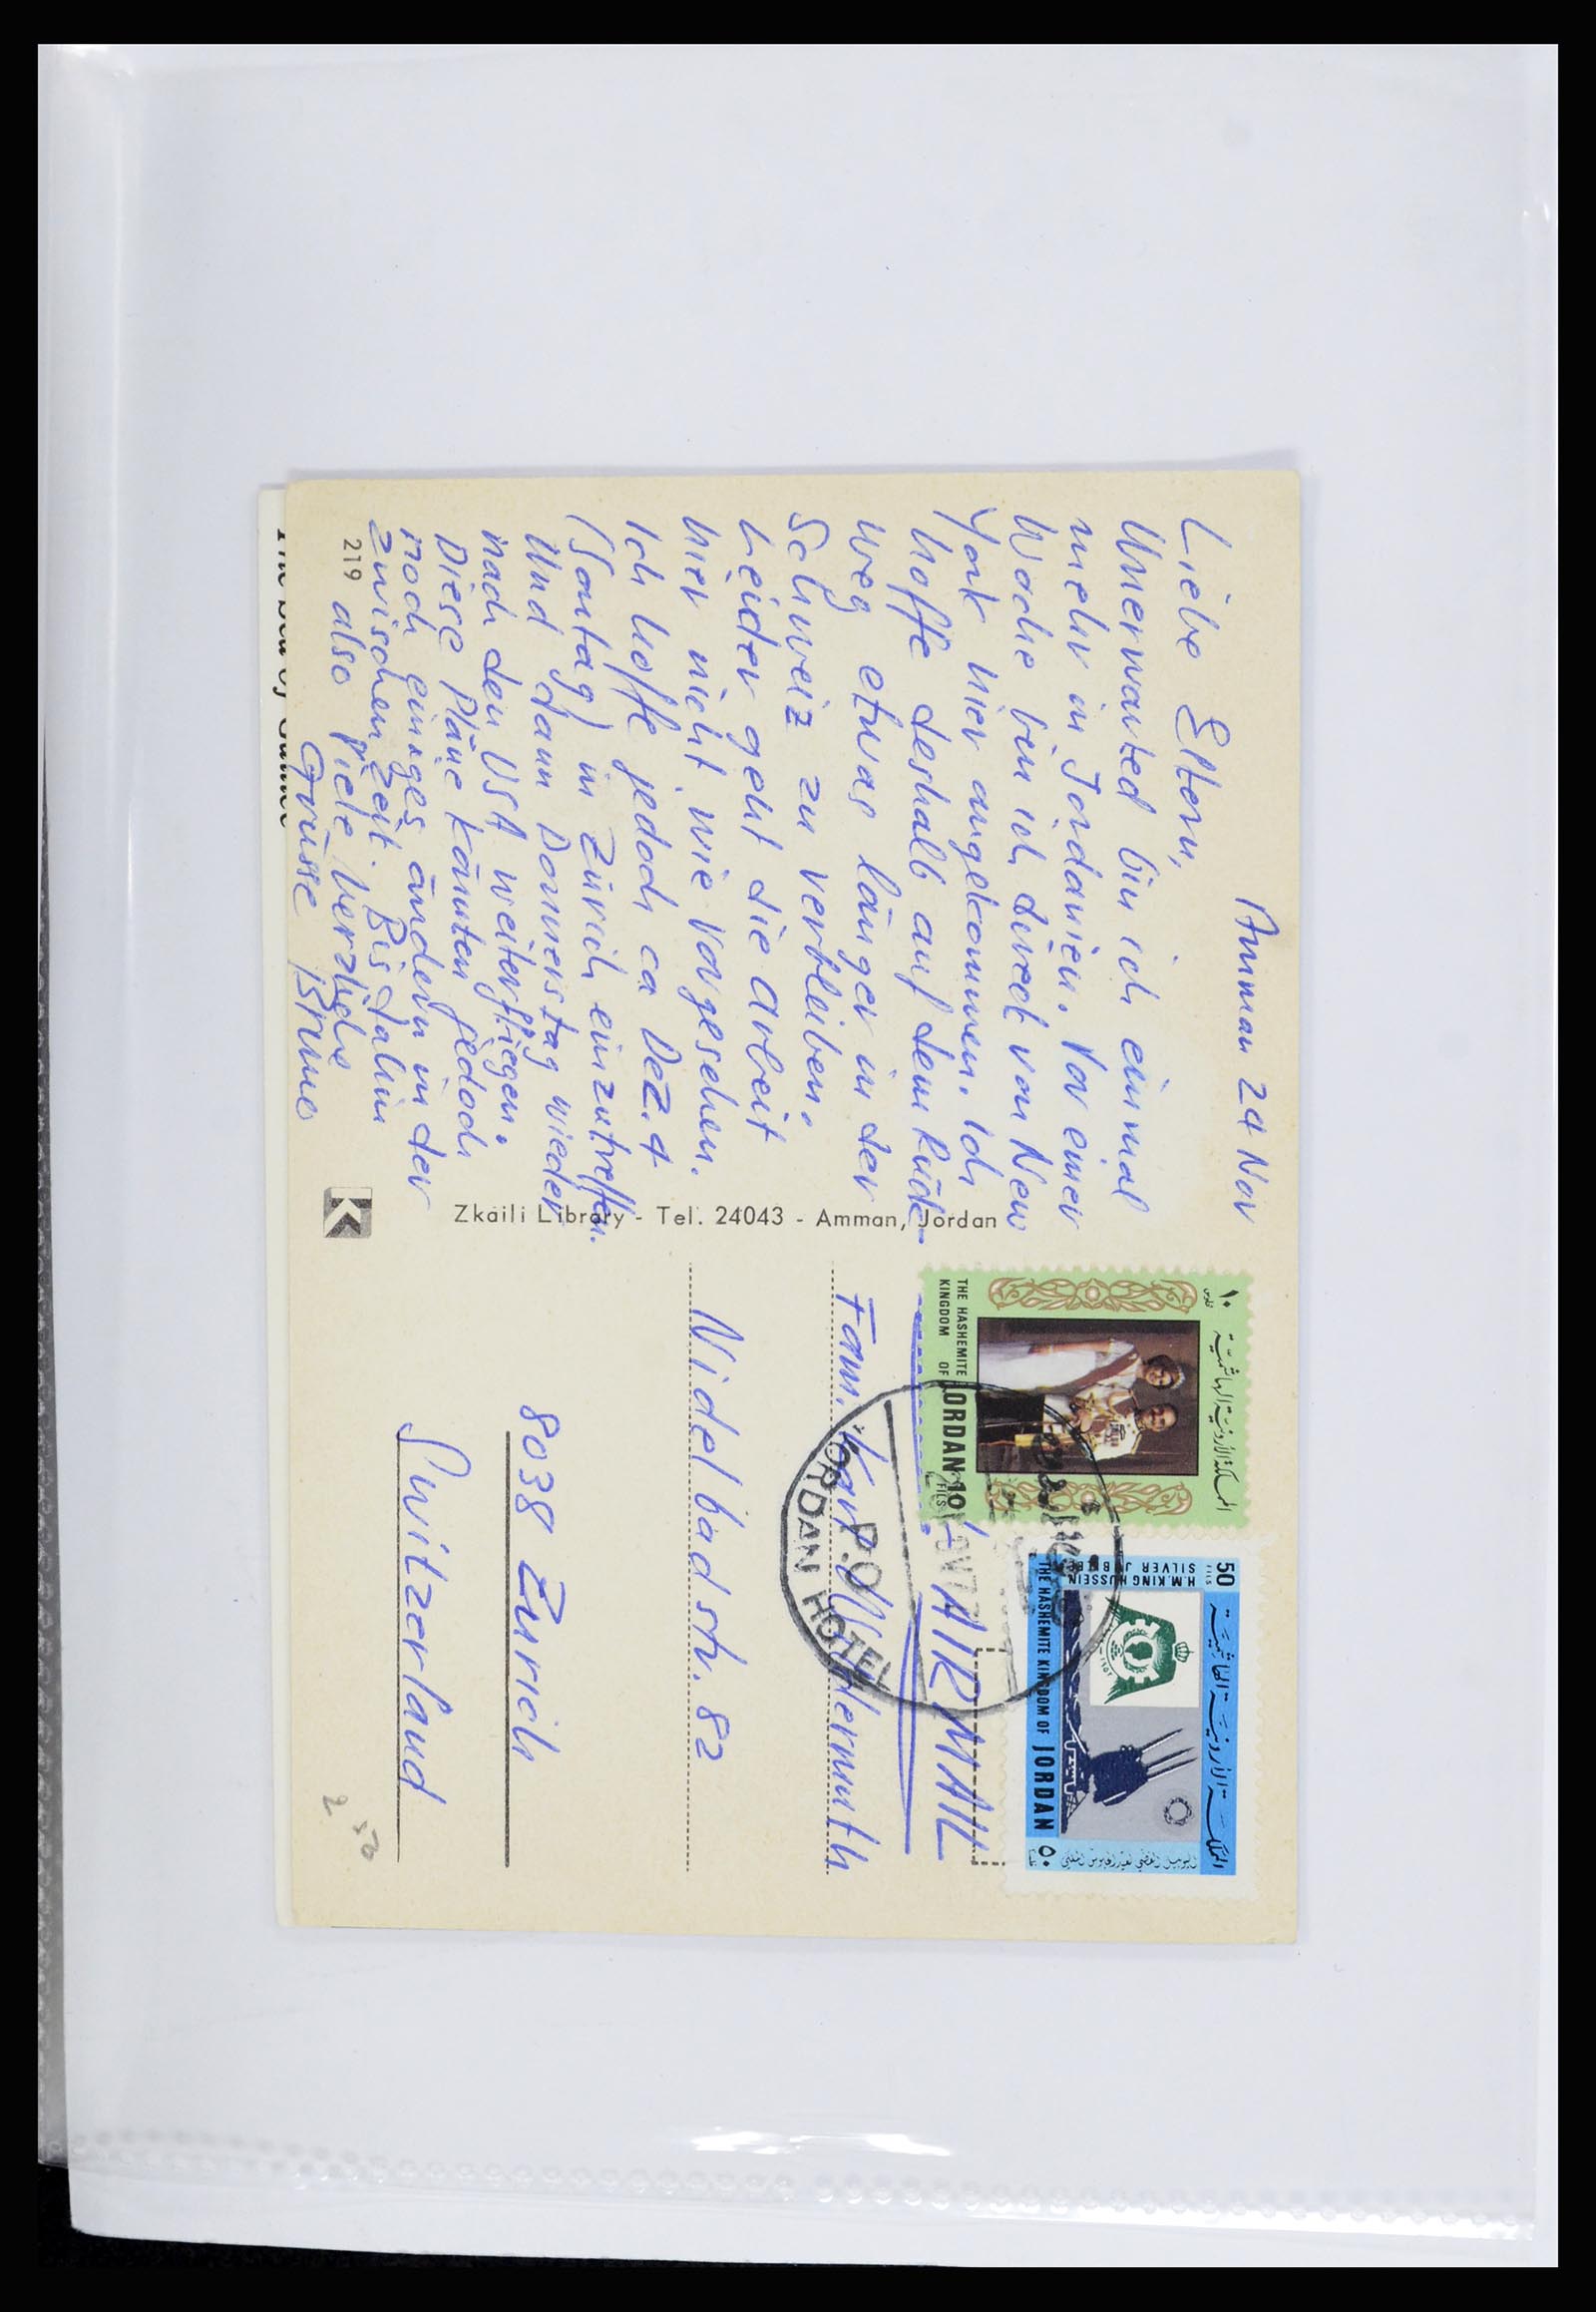 Amman 24 Nov
Liebe Eltern,
Unerwarted bin ich einmal
mehr in Jordanien. Vor einer
Woche bin ich direct von New
York hier angekommen. Ich
hoffe deshalb auf dem Rück-
weg etwas länger in der
Schweiz zu verbleiben.
Leider geht die Arbeit
hier nicht wie vorgesehen.
Ich hoffe jedoch ca Dez. 4
(Sontag) in Zürich einzutreffen.
Und dann Donnerstag wieder
nach den USA weiterfliegen.
Diese Pläne könnten jedoch
noch einiges ändern in der
zwischenzeit. Bis dahin
also viele herzliche
Grüsse Bruno
219
Zkaili Library - Tel. 24043 - Amman, Jordan
K
AIR MAIL
Fam. Karl
Nidelbadstr. 82
8038 Zürich
Switzerland
2 50
المملكة الأردنية الهاشمية
١٠ فلوس
THE HASHEMITE
KINGDOM OF JORDAN 10 FILS
50 FILS
H.M. KING HUSSEIN
SILVER JUBILEE
المملكة الأردنية الهاشمية
THE HASHEMITE KINGDOM OF JORDAN
اليوبيل الفضي لعيد الجلوس الملكي
٥٠
P.O
JORDAN HOTEL